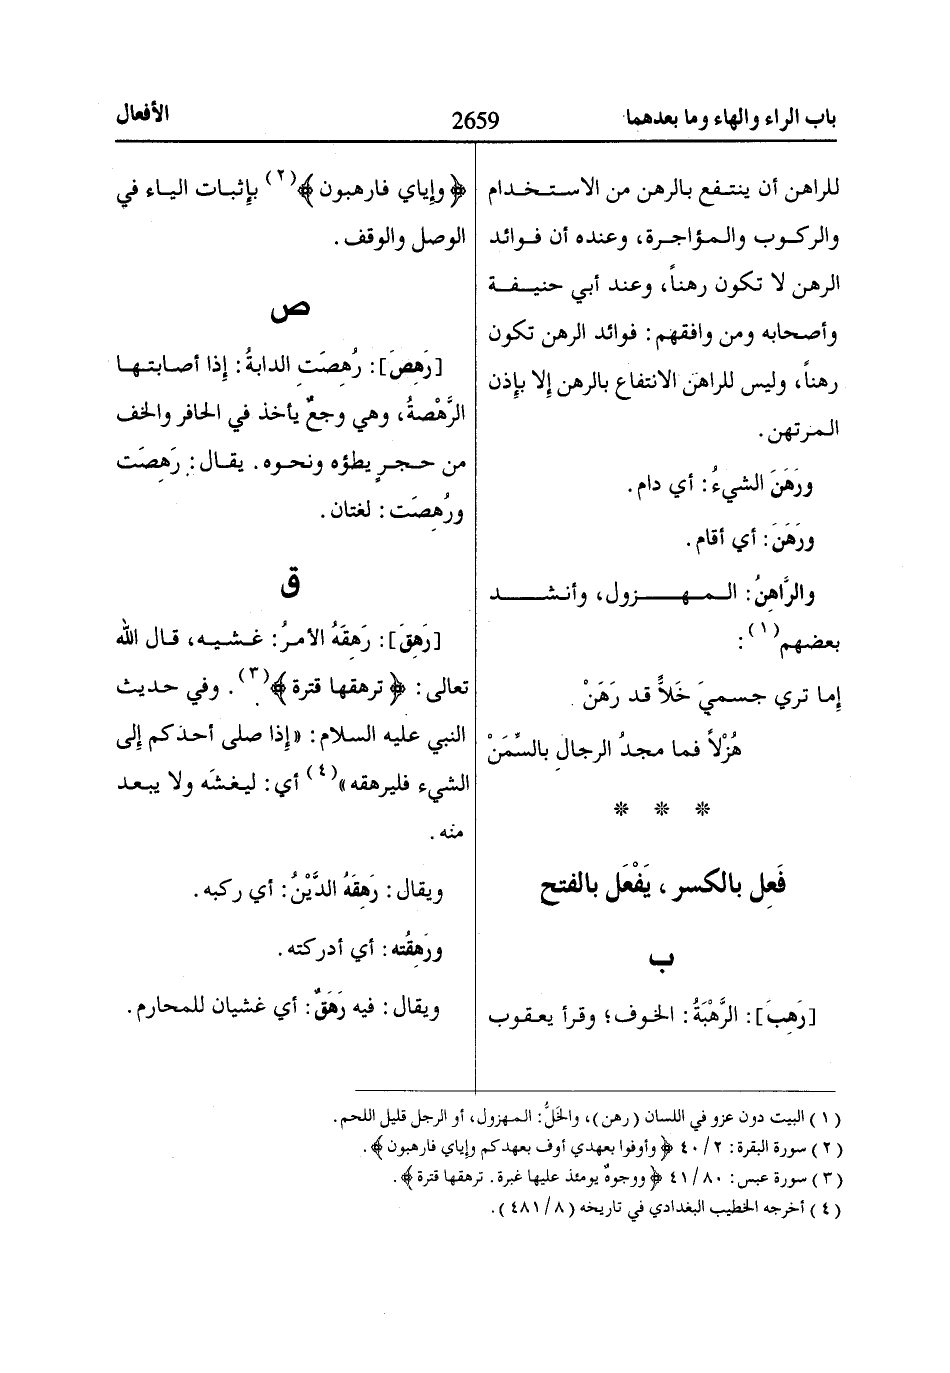 باب الراء والهاء وما بعدهما
2659
الأفعال
للراهن أن ينتفع بالرهن من الاستخدام
والركوب والمؤاجرة، وعنده أن فوائد
الرهن لا تكون رهناً، وعند أبي حنيفة
وأصحابه ومن وافقهم: فوائد الرهن تكون
رهناً، وليس للراهن الانتفاع بالرهن إلا بإذن
المرتهن.
ورَهَنَ الشيءُ: أي دام.
ورَهَنَ: أي أقام.
والرَّاهِنُ: المهزول، وأنشد
بعضهم(١):
إما تري جسميَ خَلاًّ قد رَهَنْ
هُزْلاً فما مجدُ الرجالِ بالسِّمَنْ
* * *
فَعِل بالكسر، يَفْعَل بالفتح
ب
[رَهِبَ]: الرَّهْبَةُ: الخوف؛ وقرأ يعقوب
﴿وإياي فارهبون﴾(٢) بإثبات الياء في
الوصل والوقف.
ص
[رَهِصَ]: رُهِصَت الدابةُ: إذا أصابتها
الرَّهْصةُ، وهي وجعٌ يأخذ في الحافر والخف
من حجرٍ يطؤه ونحوه. يقال: رَهِصَت
ورُهِصَت: لغتان.
ق
[رَهِقَ]: رَهِقَهُ الأمرُ: غشيه، قال الله
تعالى: ﴿ترهقها قترة﴾(٣). وفي حديث
النبي عليه السلام: «إذا صلى أحدكم إلى
الشيء فليرهقه»(٤) أي: ليغشَه ولا يبعد
منه.
ويقال: رَهِقَهُ الدَّيْنُ: أي ركبه.
ورَهِقُته: أي أدركته.
ويقال: فيه رَهَقٌ: أي غشيان للمحارم.
(١) البيت دون عزو في اللسان (رهن)، والخَلُّ: المهزول، أو الرجل قليل اللحم.
(٢) سورة البقرة: ٢/ ٤٠ ﴿وأوفوا بعهدي أوف بعهدكم وإياي فارهبون﴾.
(٣) سورة عبس: ٨٠/ ٤١ ﴿ووجوهٌ يومئذ عليها غبرة. ترهقها قترة﴾.
(٤) أخرجه الخطيب البغدادي في تاريخه (٨/ ٤٨١).